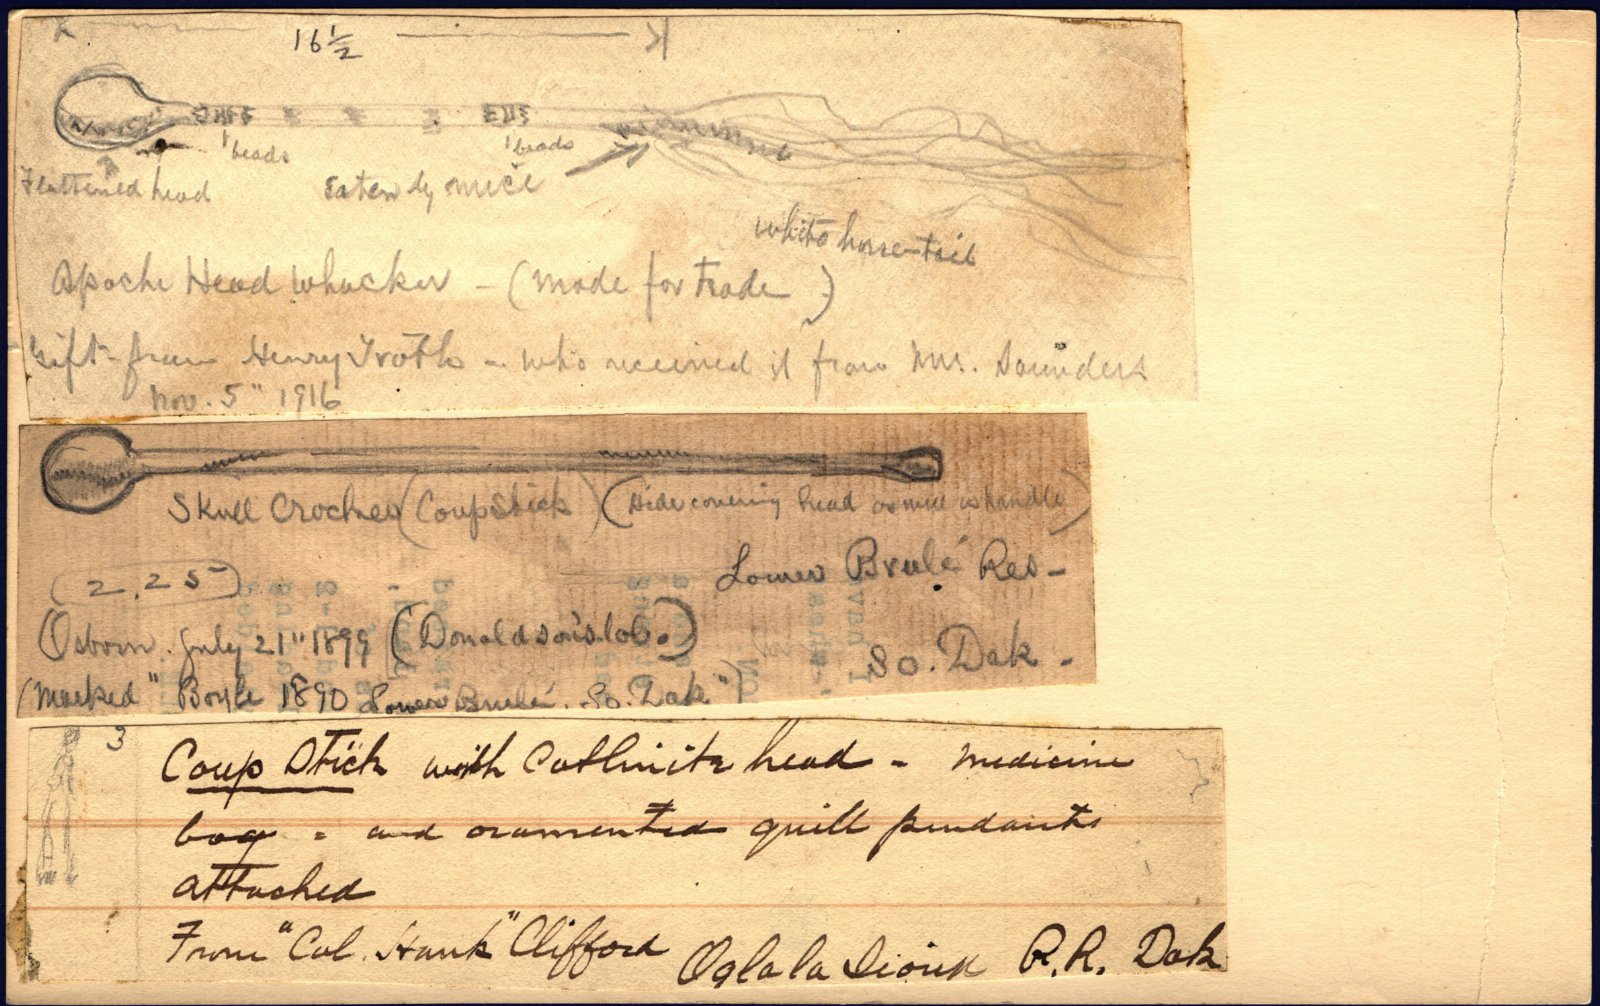 16 1/2
beads
beads
Flattened head
Eaten by mice
white horse-tail
Apache Head Whacker - (Made for trade)
Gift from Henry Troth - who received it from Mrs. Saunders
Nov. 5" 1916
Skull Cracker (Coup Stick) (Hide covering head as well as handle)
2.25
Lower Brulé Res -
Osborn. July 21" 1899 (Donaldson's lot.)
So. Dak -
(Marked "Boyle 1890 Lower Brulé. So. Dak")
3
Coup Stick with Catlinite head - medicine
bag - and oramented quill pendants
attached
From "Col. Hank" Clifford Oglala Sioux P.R. Dak